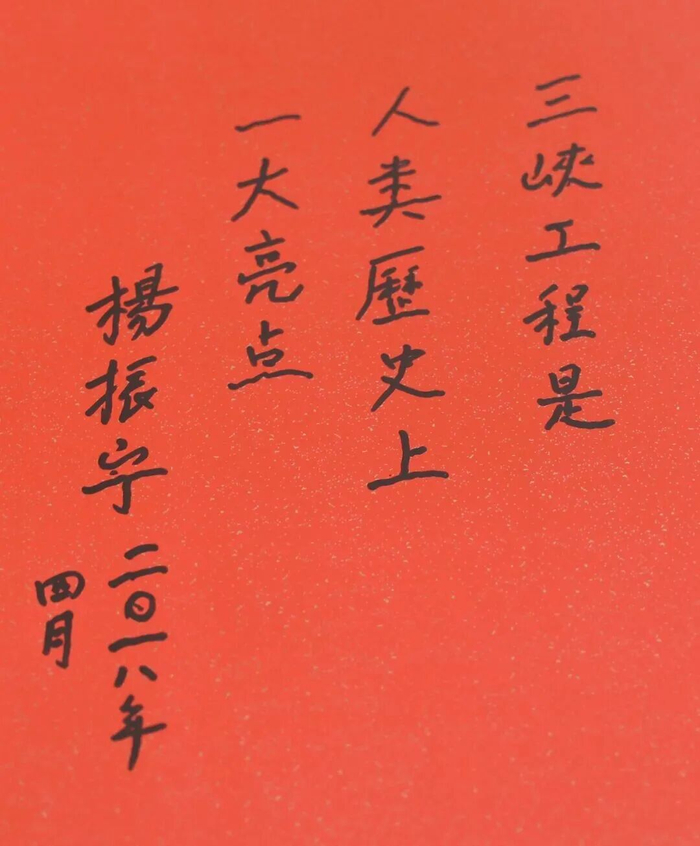 三峽工程是
人类歷史上
一大亮点
楊振宁
二〇一八年
四月